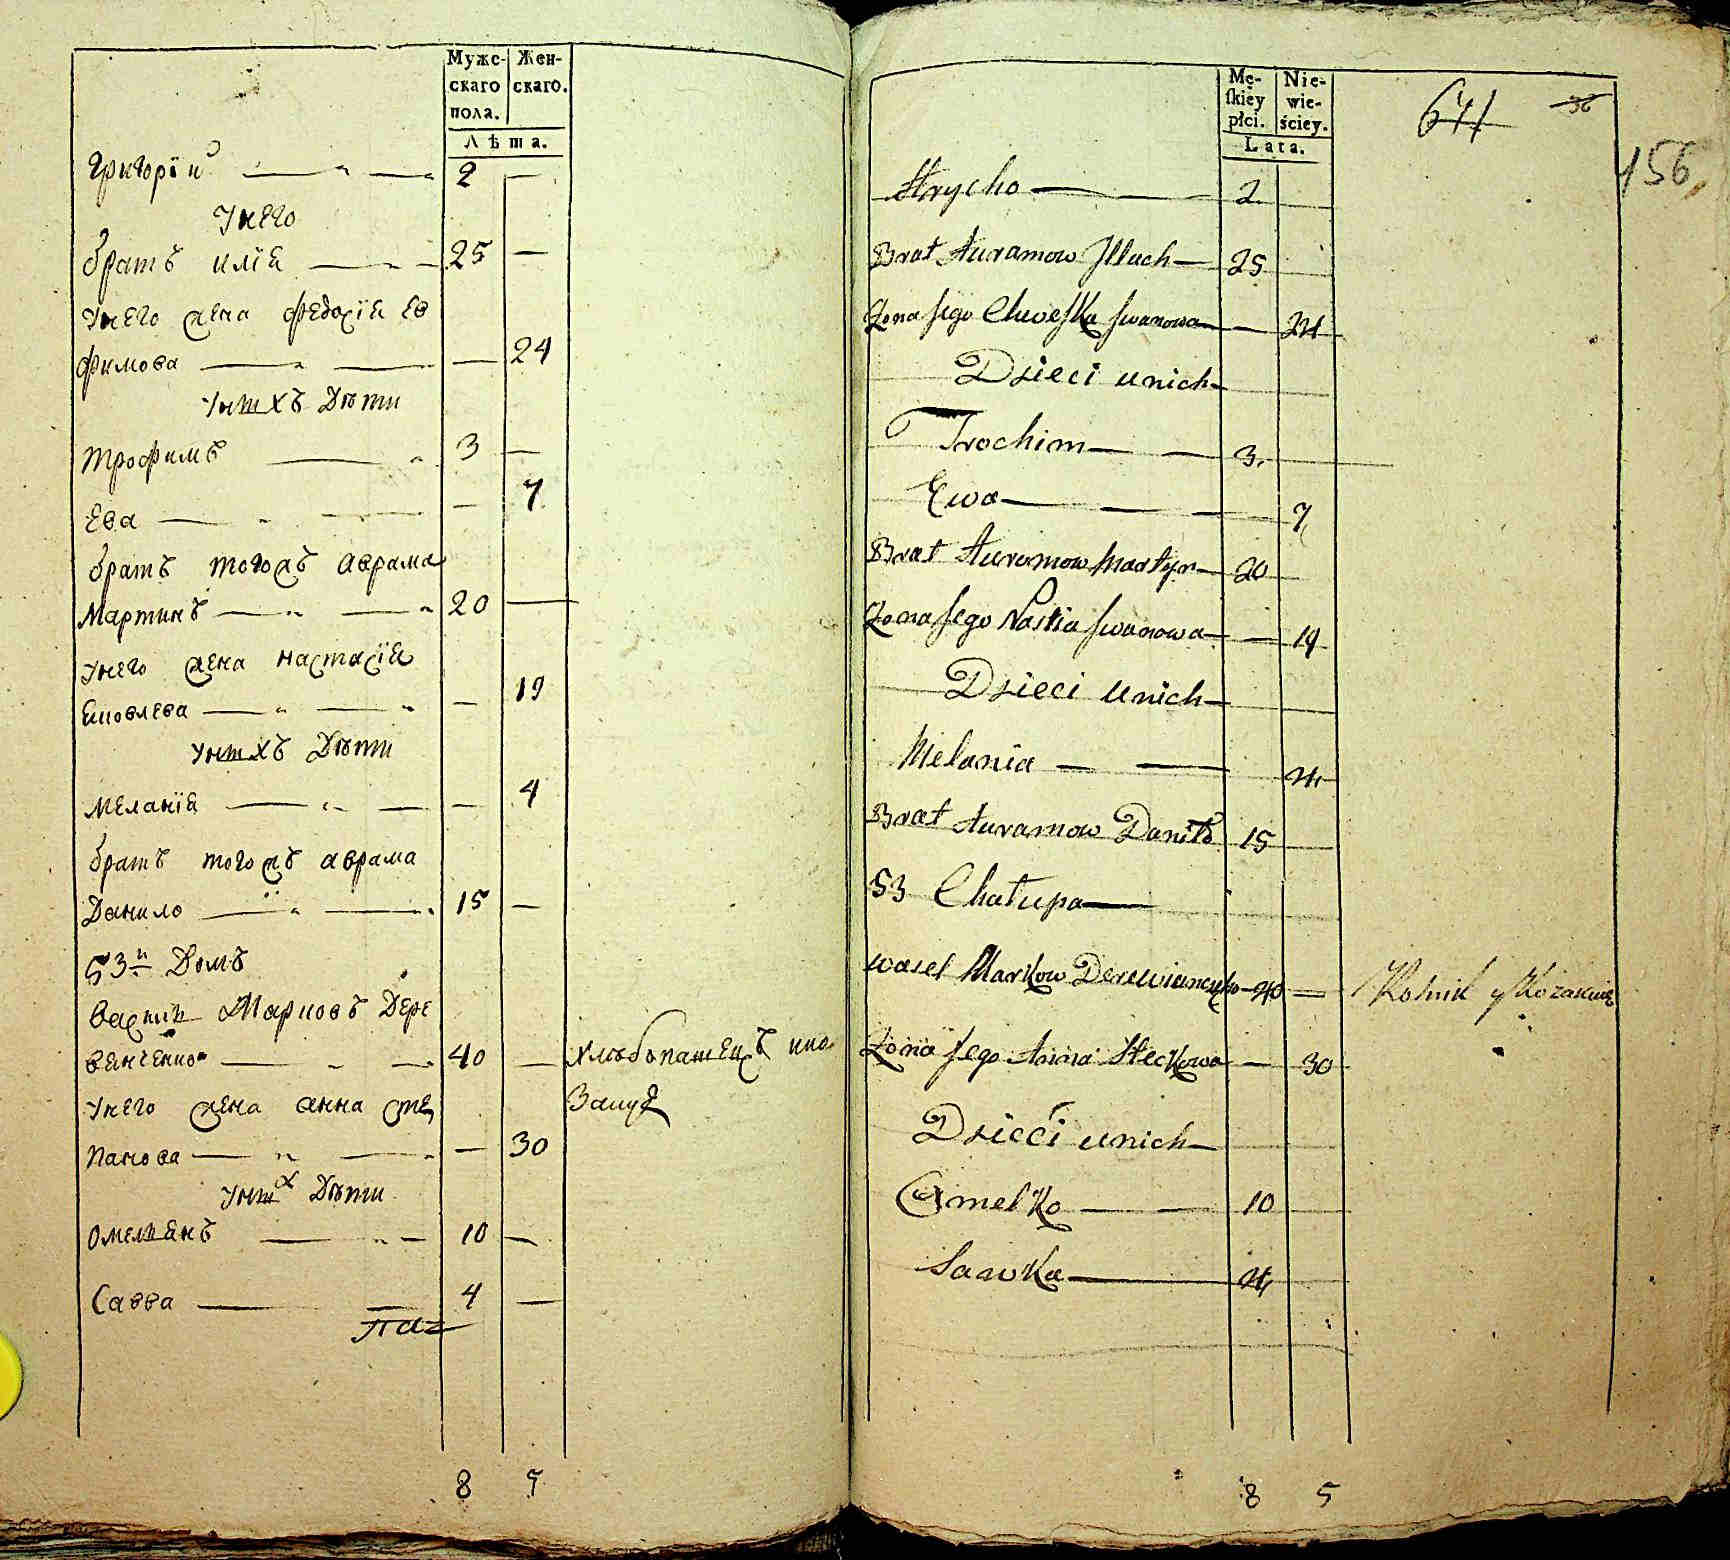 Мужс- Жен-
скаго скаго.
пола.
Лѣта.
Григорїй 2 —
Унего
братъ илїя 25 —
Унего жена федосїя ев
фимова — 24
Унихъ Дѣти
трофимъ 3 —
Ева — 7
братъ тогожъ аврама
Мартинъ 20 —
Унего жена настасїя
яковлева — 19
Унихъ Дѣти
меланїя — 4
братъ тогожъ аврама
Данило 15 —
53й Домъ
Василь Марковъ Дере
вянченко 40 — хлѣбопашецъ ико
Унего жена анна сте
панова — 30
Унихъ Дѣти
омелянъ 10 —
Савва 4 —
8 5
Mę- Nie-
skiey wie-
płci. ściey.
Lata.
641 36
156
Hrycko 2
Brat Auramow Illach 25
Żona Jego Chweska Iwanowa — 24
Dzieci unich
Trochim 3
Ewa 7
Brat Auramow Martyn 20
Żona Jego Nastia Iwanowa — 19
Dzieci unich
Melania 4
Brat Auramow Daniło 15
53 Chałupa
Wasel Markow Derewianczyko 40 — Rolnik y Kozakuie
Żona Jego Anna Steckowa — 30
Dzieci unich
Omelko 10
Sawka 4
8 5